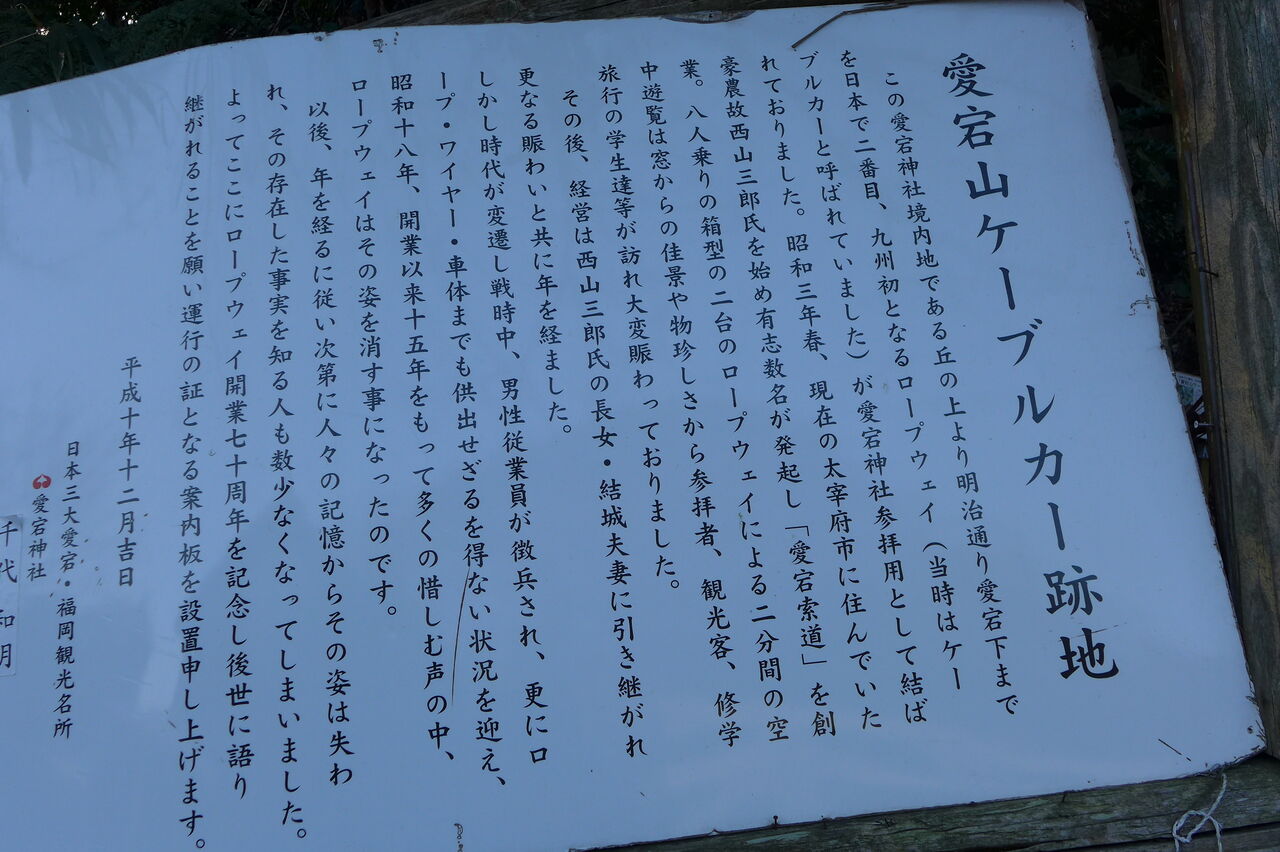 愛宕山ケーブルカー跡地
この愛宕神社境内地である丘の上より明治通り愛宕下まで
を日本で二番目、九州初となるロープウェイ(当時はケー
ブルカーと呼ばれていました)が愛宕神社参拝用として結ば
れておりました。昭和三年春、現在の太宰府市に住んでいた
豪農故西山三郎氏を始め有志数名が発起し「愛宕索道」を創
業。八人乗りの箱型の二台のロープウェイによる二分間の空
中遊覧は窓からの佳景や物珍しさから参拝者、観光客、修学
旅行の学生達等が訪れ大変賑わっておりました。
その後、経営は西山三郎氏の長女・結城夫妻に引き継がれ
更なる賑わいと共に年を経ました。
しかし時代が変遷し戦時中、男性従業員が徴兵され、更にロ
ープ・ワイヤー・車体までも供出せざるを得ない状況を迎え、
昭和十八年、開業以来十五年をもって多くの惜しむ声の中、
ロープウェイはその姿を消す事になったのです。
以後、年を経るに従い次第に人々の記憶からその姿は失わ
れ、その存在した事実を知る人も数少なくなってしまいました。
よってここにロープウェイ開業七十周年を記念し後世に語り
継がれることを願い運行の証となる案内板を設置申し上げます。
平成十年十二月吉日
日本三大愛宕・福岡観光名所
愛宕神社
千代和明